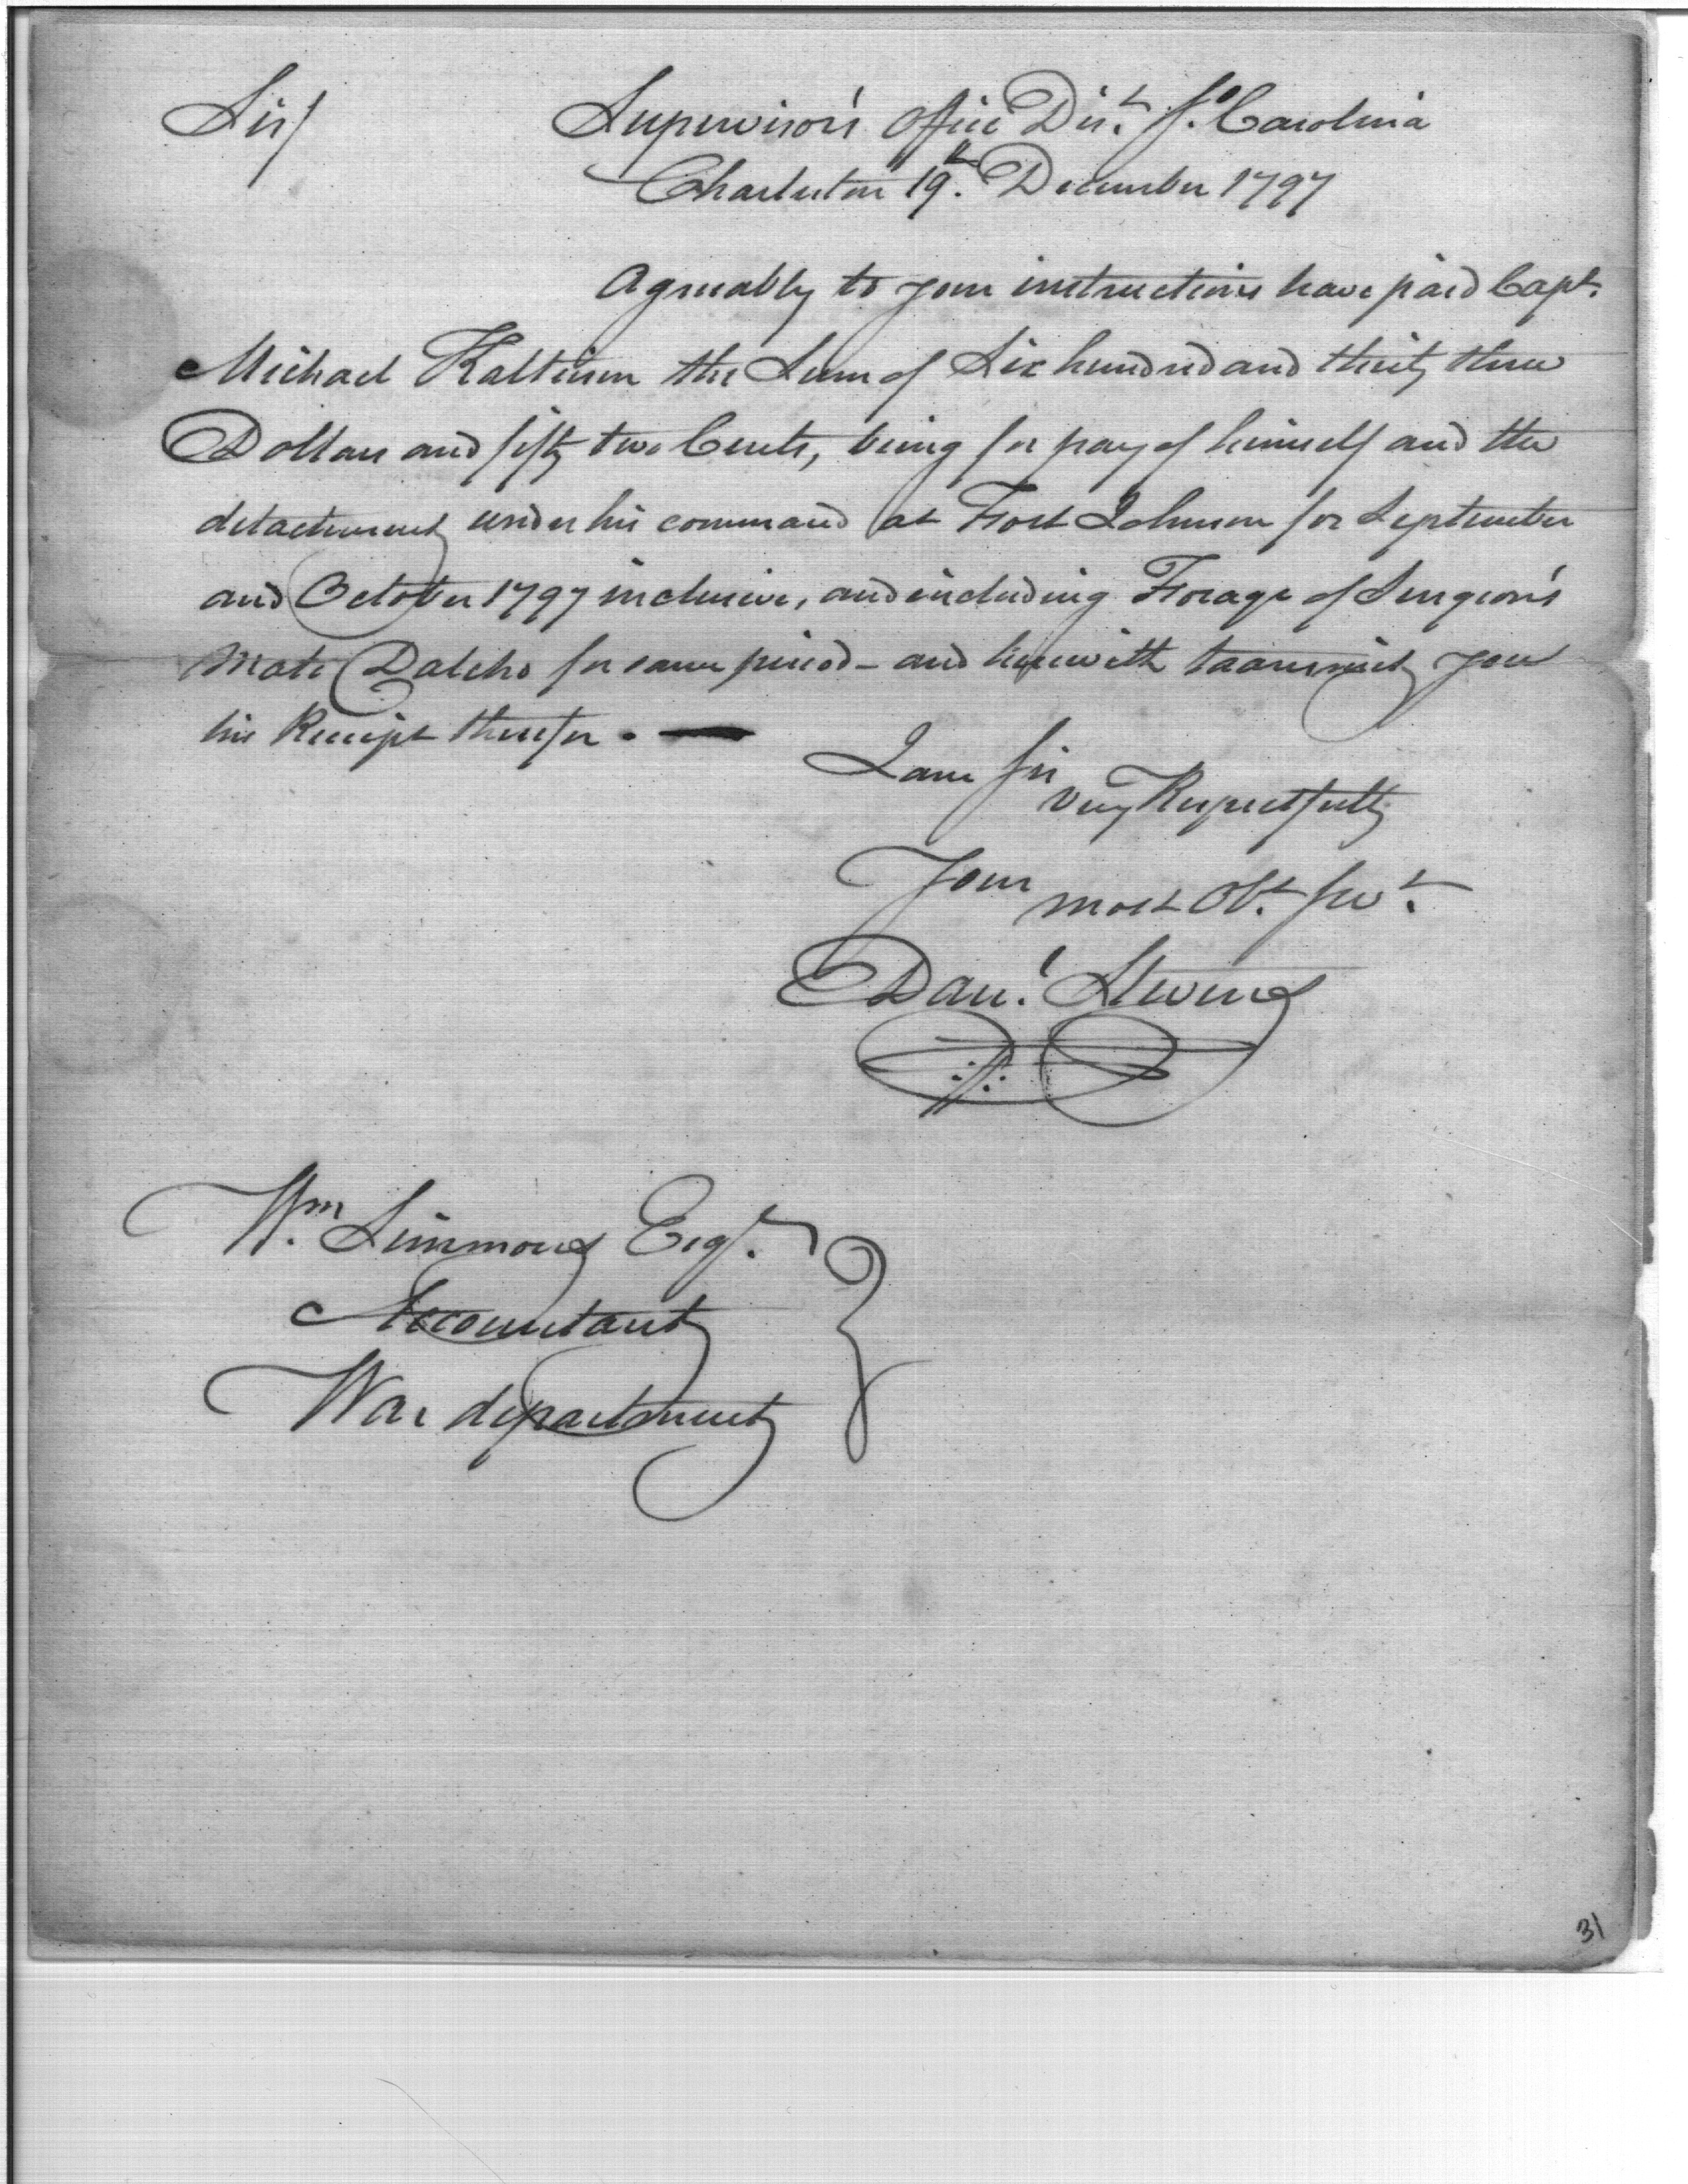 Sir/
Supervisor's Office Dist. So. Carolina
Charleston 19th. December 1797
Agreeably to your instructions have paid Capt.
Michael Kalteisen the Sum of Six hundred and thirty three
Dollars and fifty two Cents, being for pay of himself and the
detachment under his command at Fort Johnson for September
and October 1797 inclusive, and including Forage of Surgeon's
Mate Dalcho for same period - and herewith transmit you
his Receipt therefor. —
I am Sir
Very Respectfully
Your
most Obt. Servt.
Danl. Stevens
Wm. Simmons Esqr.
Accountant
War department
31